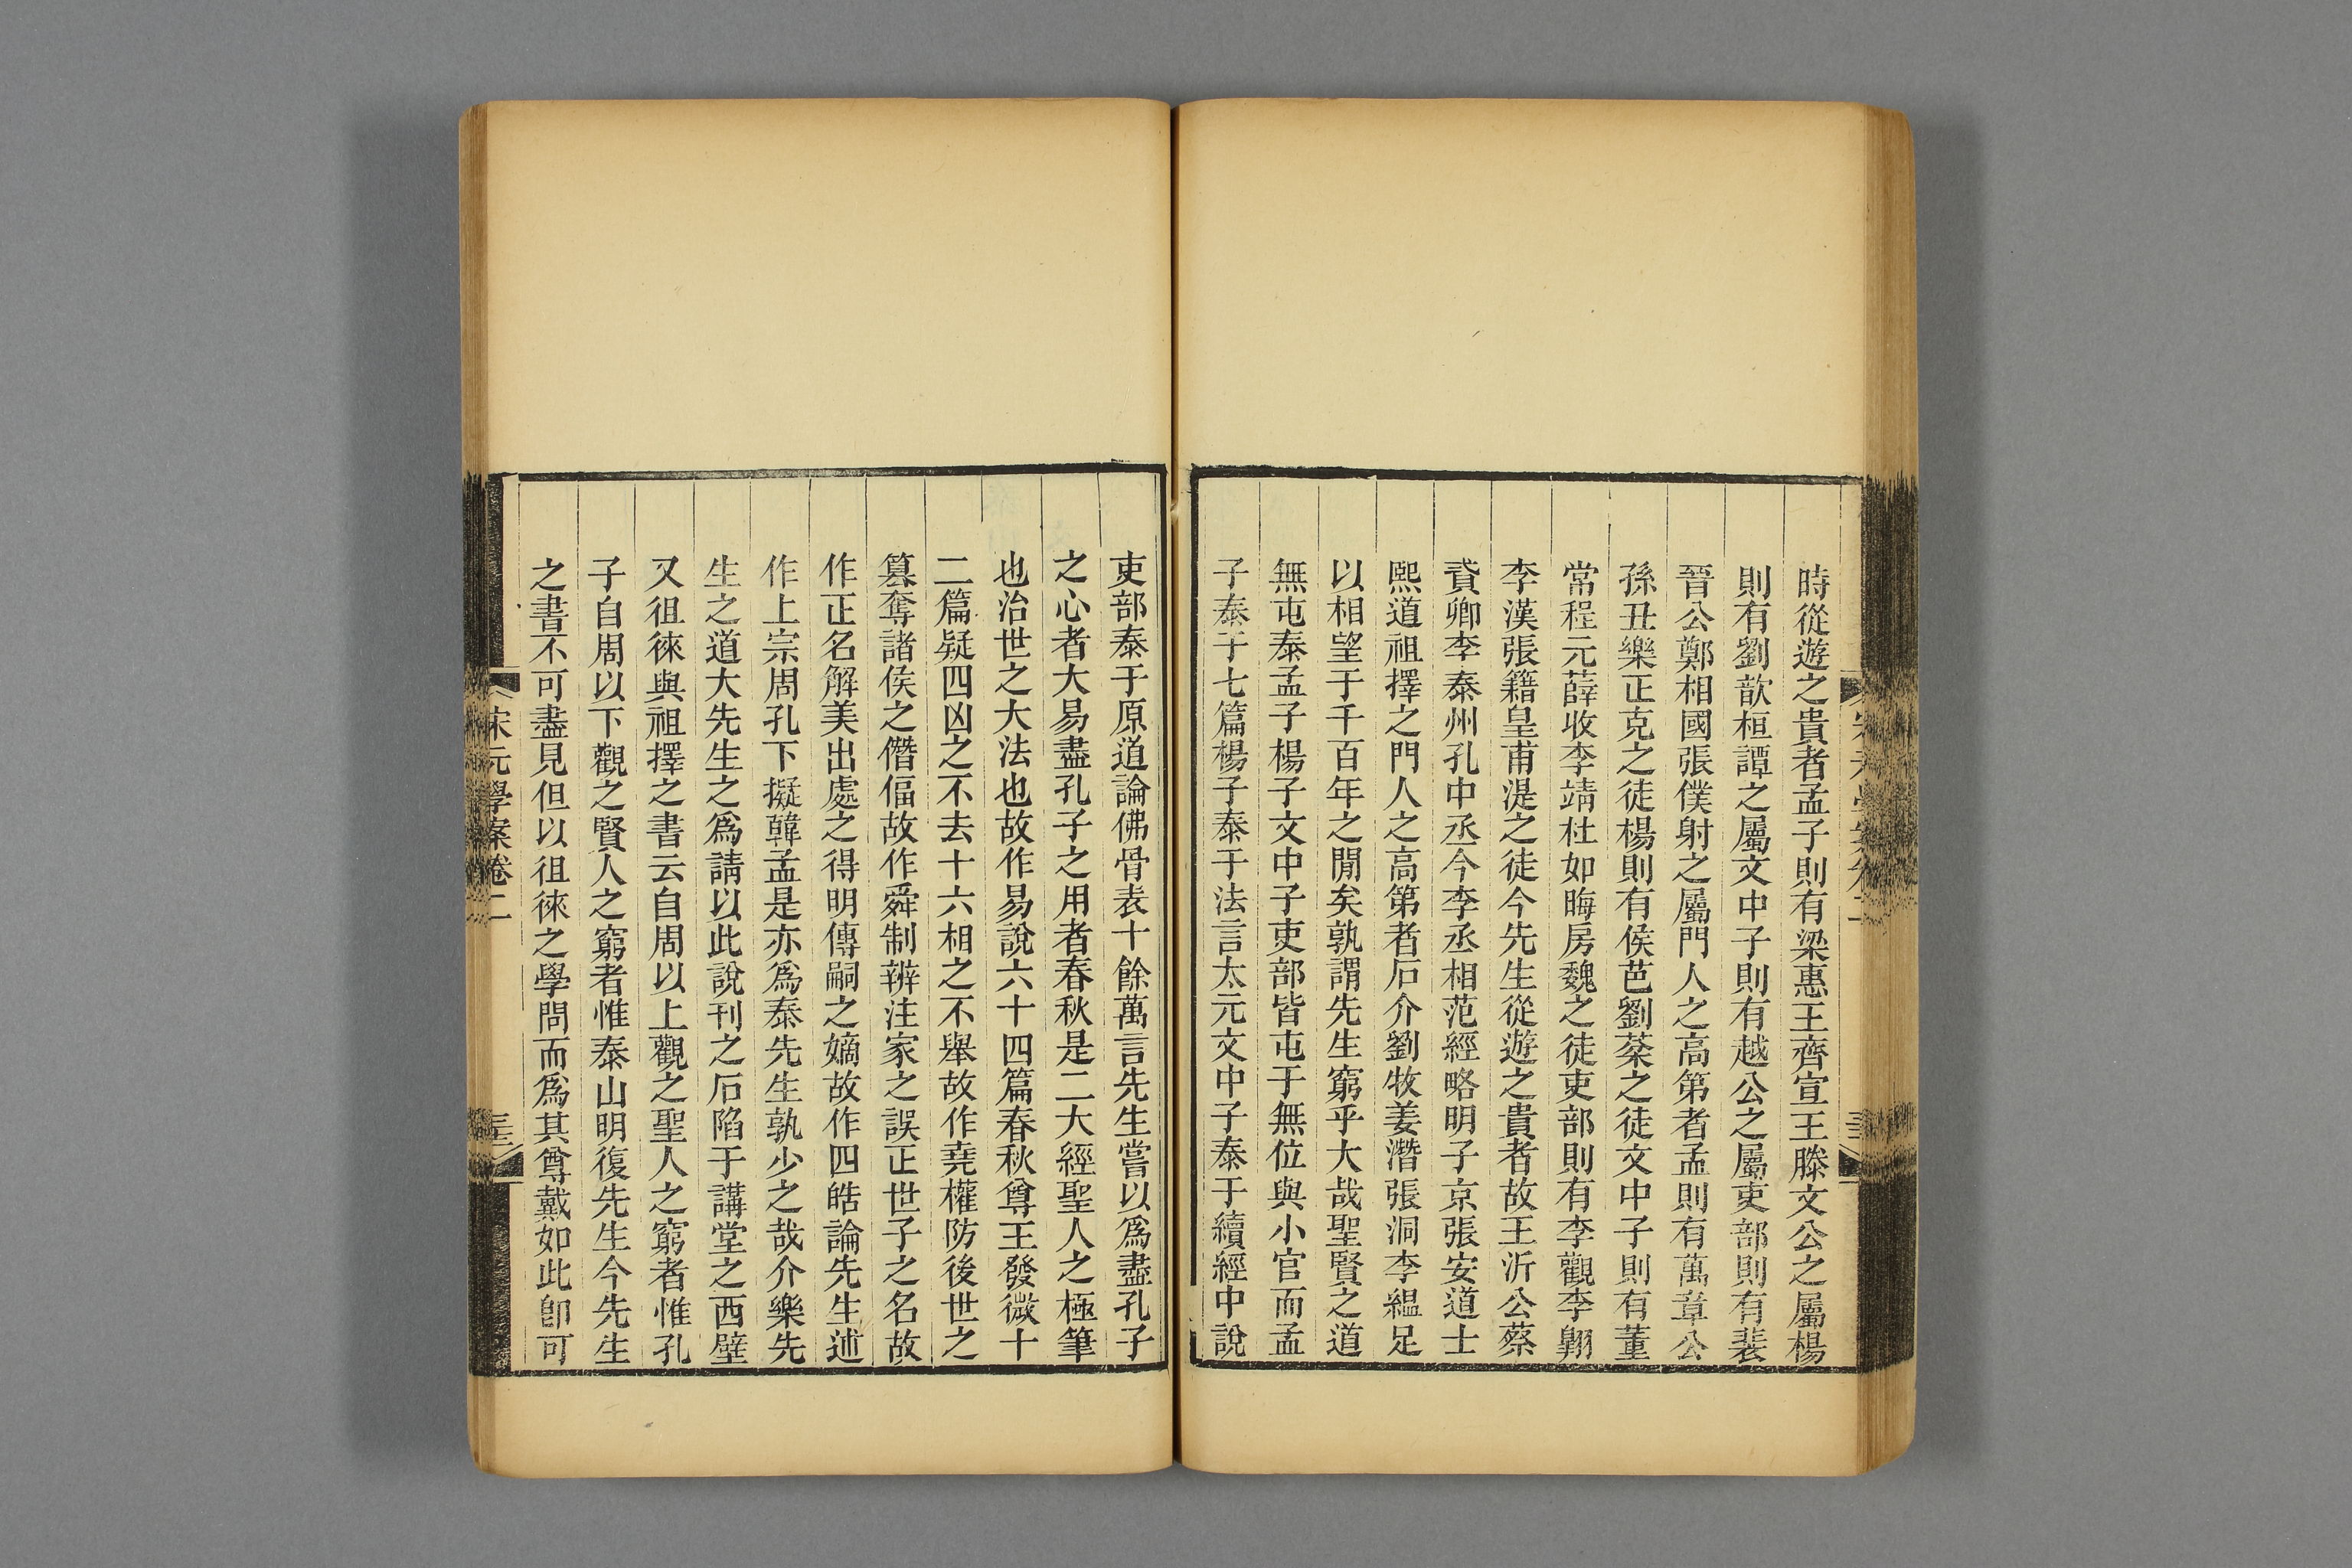 時從遊之貴者孟子則有梁惠王齊宣王滕文公之屬楊
則有劉歆桓譚之屬文中子則有越公之屬吏部則有裴
晉公鄭相國張僕射之屬門人之高第者孟則有萬章公
孫丑樂正克之徒楊則有侯芭劉棻之徒文中子則有董
常程元薛收李靖杜如晦房魏之徒吏部則有李觀李翺
李漢張籍皇甫湜之徒今先生從遊之貴者故王沂公蔡
貳卿李泰州孔中丞今李丞相范經略明子京張安道士
熙道祖擇之門人之高第者石介劉牧姜潛張洞李緼足
以相望于千百年之閒矣孰謂先生窮乎大哉聖賢之道
無屯泰孟子楊子文中子吏部皆屯于無位與小官而孟
子泰于七篇楊子泰于法言太元文中子泰于續經中說
吏部泰于原道論佛骨表十餘萬言先生嘗以爲盡孔子
之心者大易盡孔子之用者春秋是二大經聖人之極筆
也治世之大法也故作易說六十四篇春秋尊王發微十
二篇疑四凶之不去十六相之不舉故作堯權防後世之
篡奪諸侯之僭偪故作舜制辨注家之誤正世子之名故
作正名解美出處之得明傳嗣之嫡故作四皓論先生述
作上宗周孔下擬韓孟是亦爲泰先生孰少之哉介樂先
生之道大先生之爲請以此說刊之石陷于講堂之西壁
又徂徠與祖擇之書云自周以上觀之聖人之窮者惟孔
子自周以下觀之賢人之窮者惟泰山明復先生今先生
之書不可盡見但以徂徠之學問而爲其尊戴如此卽可
宋元學案卷二